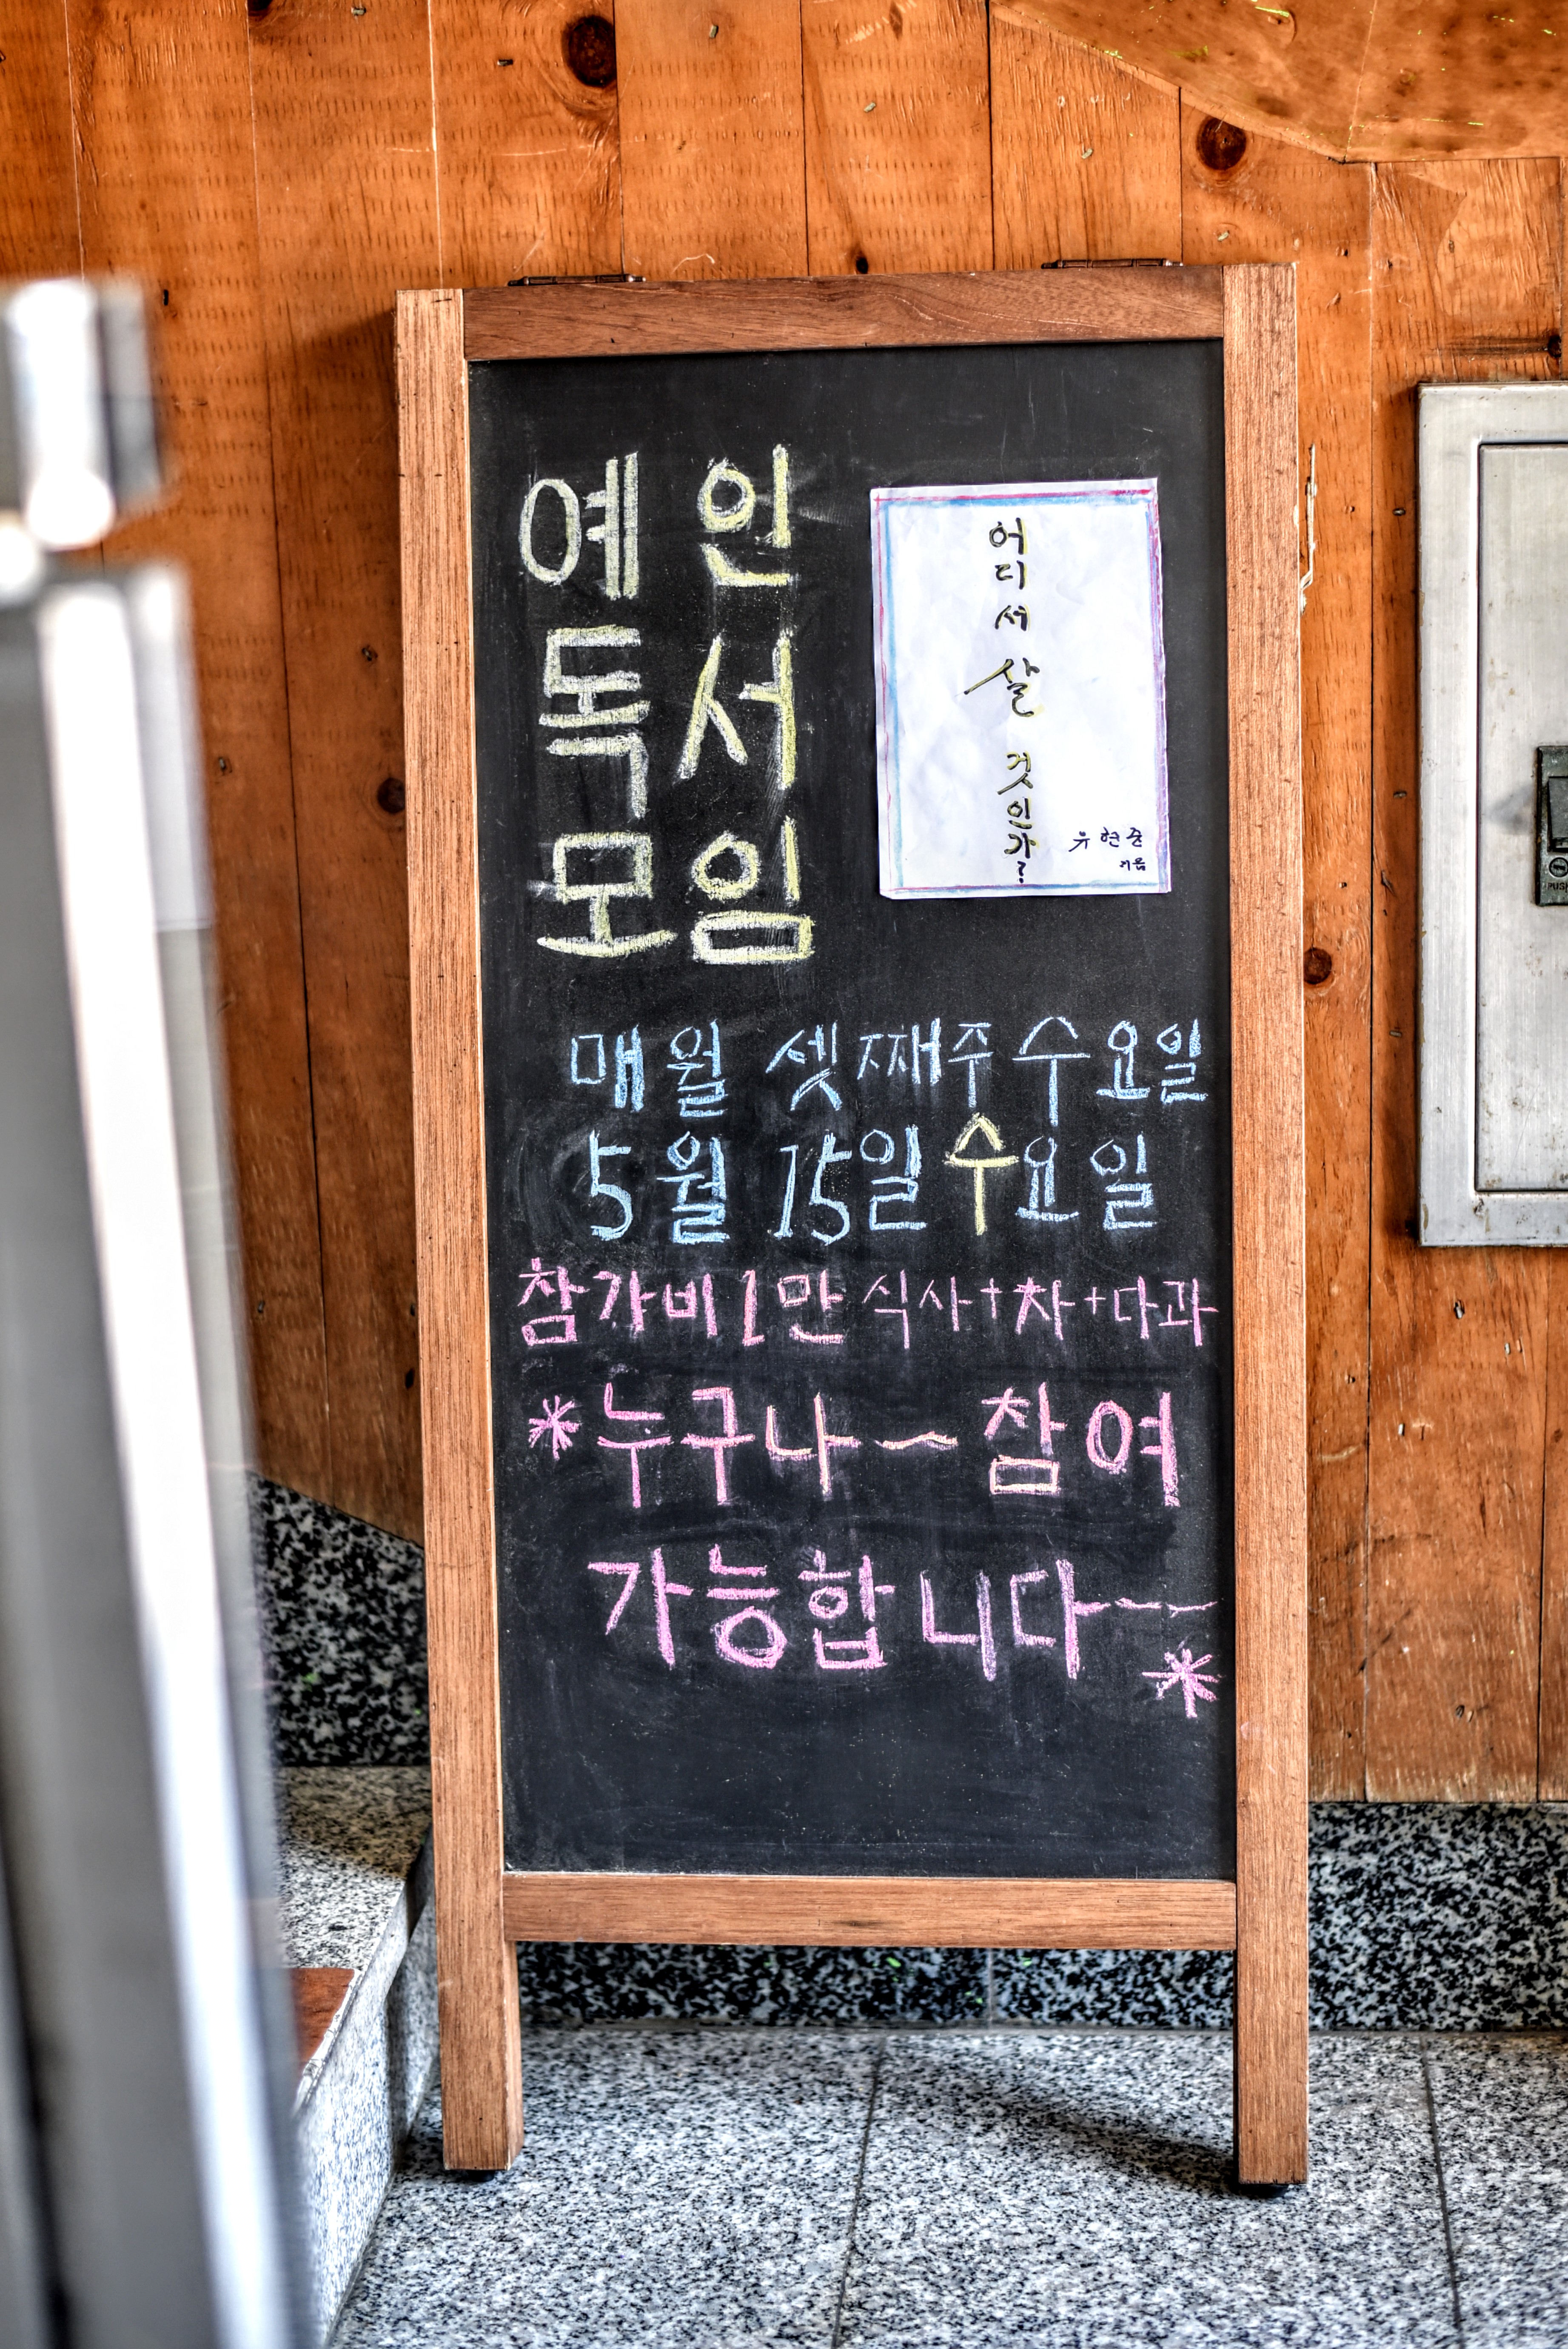 예인
독서
모임
어디서 살 것인가?
유현준
지음
매월 셋째주 수요일
5월 15일 수요일
참가비 1만 식사+차+다과
*누구나~참여
가능합니다~~
*
PUSH